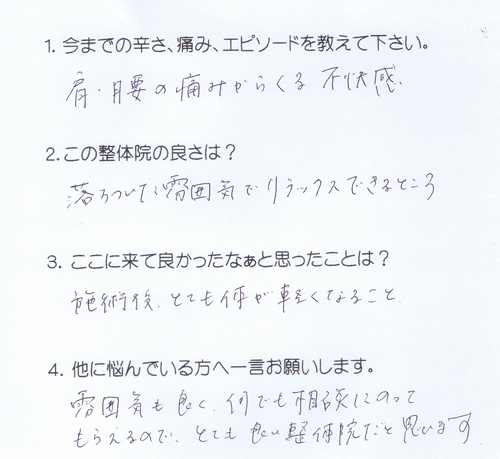 1. 今までの辛さ、痛み、エピソードを教えて下さい。
肩・腰の痛みからくる不快感.
2.この整体院の良さは？
落ちついた雰囲気でリラックスできるところ
3. ここに来て良かったなぁと思ったことは？
施術後、とても体が軽くなること.
4. 他に悩んでいる方へ一言お願いします。
雰囲気も良く、何でも相談にのって
もらえるので、とても良い整体院だと思います